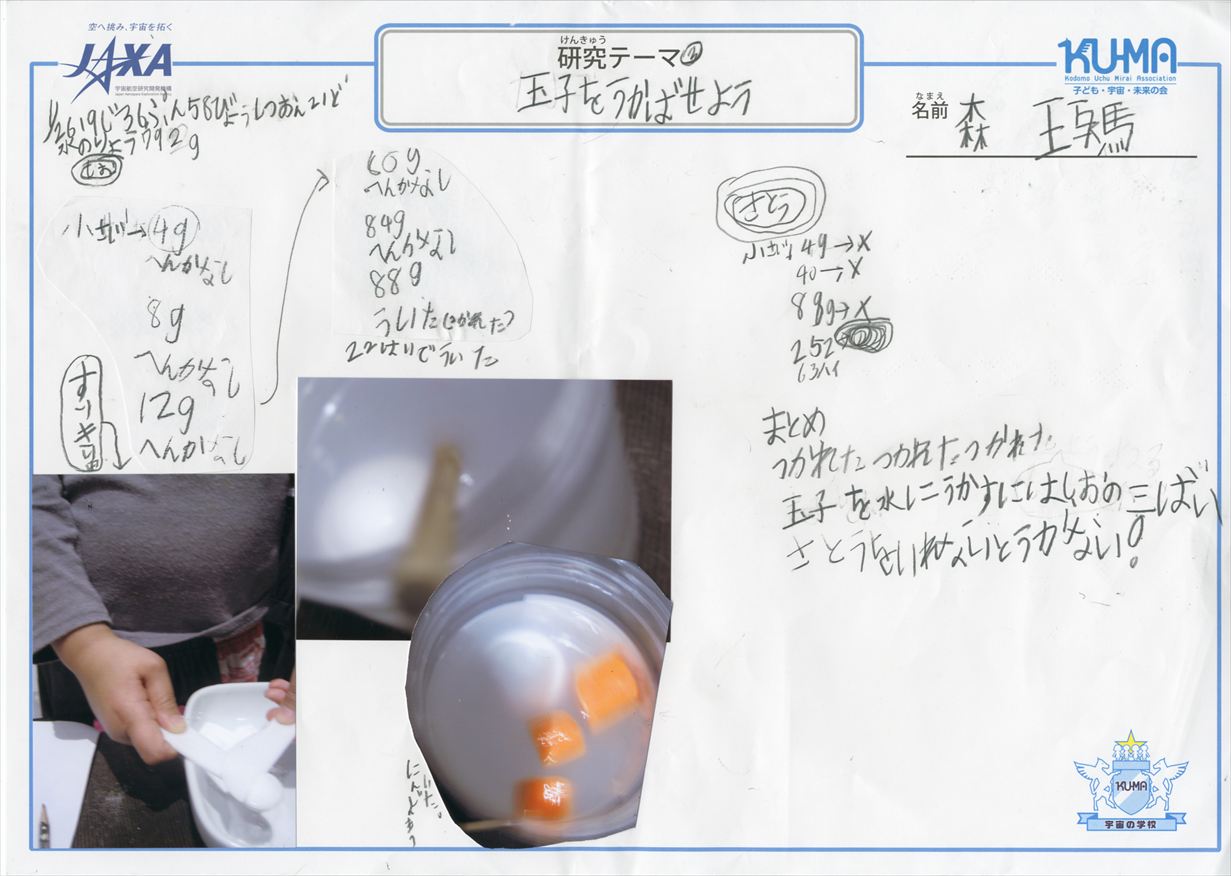 空へ挑み、宇宙を拓く
JAXA
宇宙航空研究開発機構
Japan Aerospace Exploration Agency
けんきゅう
研究テーマ③
玉子をうかばせよう
KU-MA
Kodomo Uchu Mirai Association
子ども・宇宙・未来の会
なまえ
名前 森
1/26 19じ36ぷん58びょうしつおん21ど
水のりょう792g
しお
小さじ→4g
へんかなし
8g
へんかなし
12g
へんかなし
すりキリ
80g
へんかなし
84g
へんかなし
88g
ういた(つかれた)
22はいでういた
さとう
小さじ 4g→X
40→X
88g→X
252→
63ハイ
まとめ
つかれたつかれたつかれた
玉子を水にうかすにはしおの三ばい
さとうをいれないとうかない!
にんじんもういた。
KU-MA
宇宙の学校